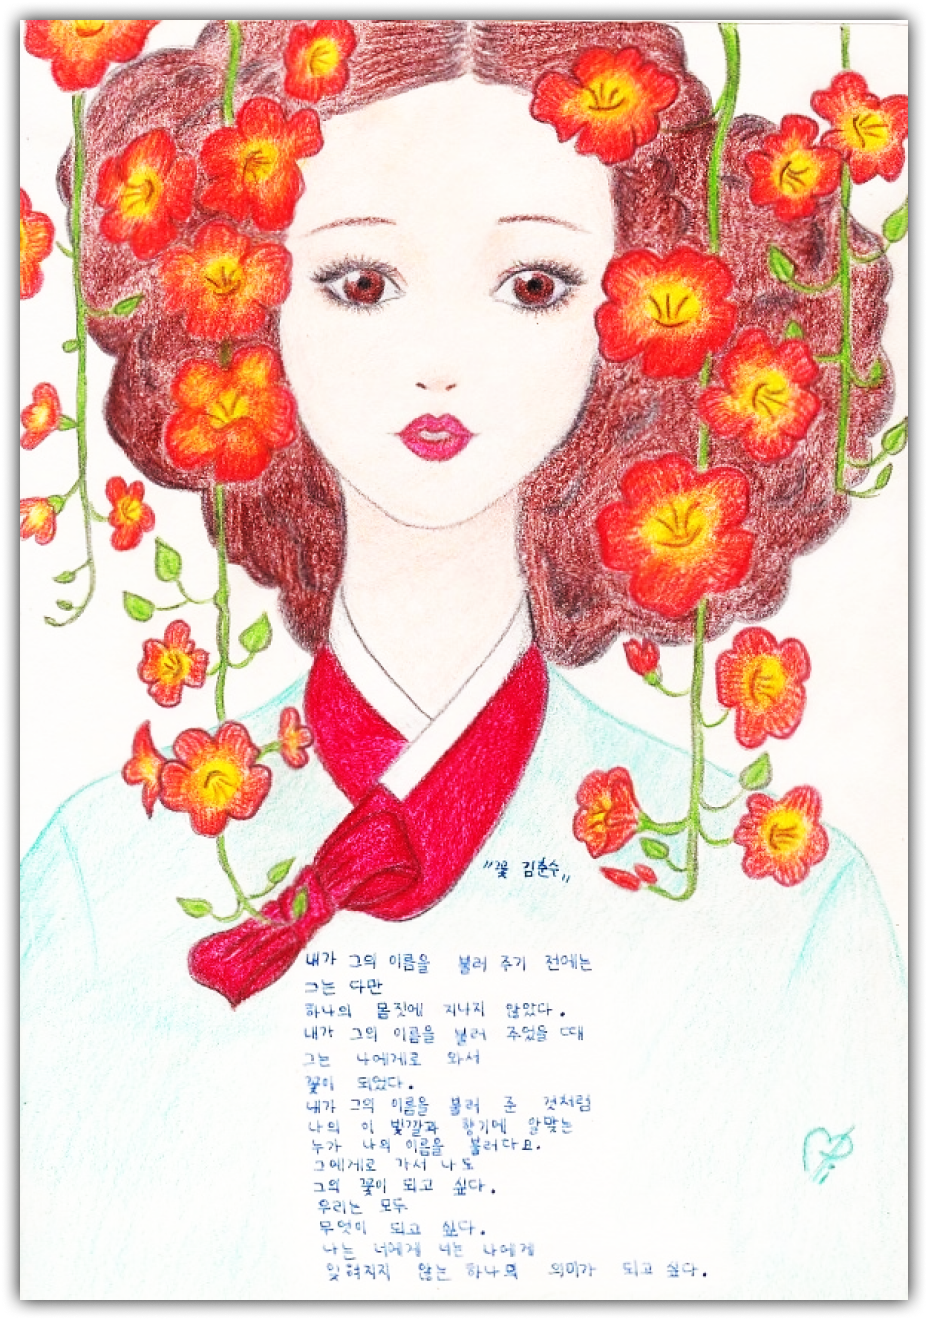 "꽃 김춘수"
내가 그의 이름을 불러 주기 전에는
그는 다만
하나의 몸짓에 지나지 않았다.
내가 그의 이름을 불러 주었을 때
그는 나에게로 와서
꽃이 되었다.
내가 그의 이름을 불러 준 것처럼
나의 이 빛깔과 향기에 알맞는
누가 나의 이름을 불러다오.
그에게로 가서 나도
그의 꽃이 되고 싶다.
우리는 모두
무엇이 되고 싶다.
나는 너에게 너는 나에게
잊혀지지 않는 하나의 의미가 되고 싶다.